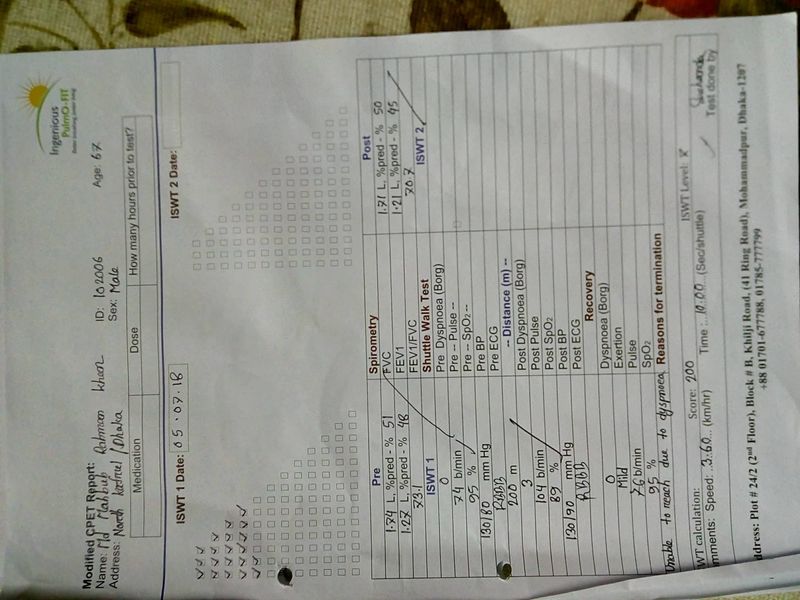 Ingenious
PulmO-FIT
Better breathing, better living
Modified CPET Report:
Name: Md Mahbub Rahman Khan ID: 102006 Age: 67
Address: North /Dhaka Sex: Male
Medication Dose How many hours prior to test?
ISWT 1 Date: 05.07.18 ISWT 2 Date:
Pre Spirometry Post
1.74 L, %pred - % 51 FVC 1.71 L, %pred - % 50
1.27 L, %pred - % 48 FEV1 1.21 L, %pred - % 45
73.1 FEV1/FVC 70.7
ISWT 1 Shuttle Walk Test ISWT 2
0 Pre Dyspnoea (Borg)
74 b/min Pre -- Pulse --
95 % Pre -- SpO2 --
130/80 mm Hg Pre BP
RBBB Pre ECG
200 m -- Distance (m) --
3 Post Dyspnoea (Borg)
104 b/min Post Pulse
89 % Post SpO2
130/90 mm Hg Post BP
RBBB Post ECG
Recovery
0 Dyspnoea (Borg)
Mild Exertion
76 b/min Pulse
95 % SpO2
Unable to reach due to dyspnoea Reasons for termination
WT calculation: Score: 200 ISWT Level:
mments: Speed: 3.60 (km/hr) Time: 10:00 (Sec/shuttle) Test done by
ddress: Plot # 24/2 (2nd Floor), Block # B, Khilji Road, (41 Ring Road), Mohammadpur, Dhaka-1207
+88 01701-677788, 01785-777799